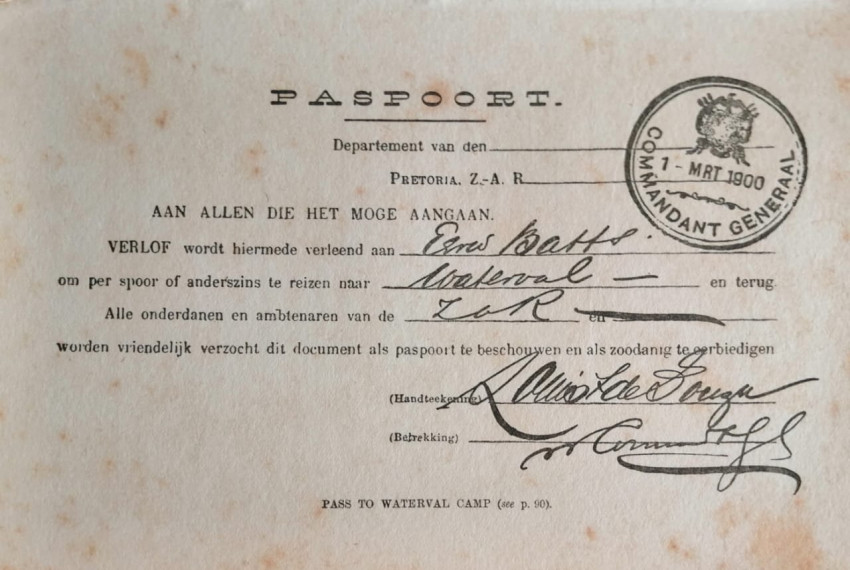 PASPOORT.
Departement van den
PRETORIA, Z.-A. R.
COMMANDANT GENERAAL
1 - MRT 1900
AAN ALLEN DIE HET MOGE AANGAAN.
VERLOF wordt hiermede verleend aan Batts.
om per spoor of anderszins te reizen naar Waterval — en terug
Alle onderdanen en ambtenaren van de ZAR en
worden vriendelijk verzocht dit document als paspoort te beschouwen en als zoodanig te eerbiedigen
(Handteekening) de Souza
(Betrekking)
PASS TO WATERVAL CAMP (see p. 90).